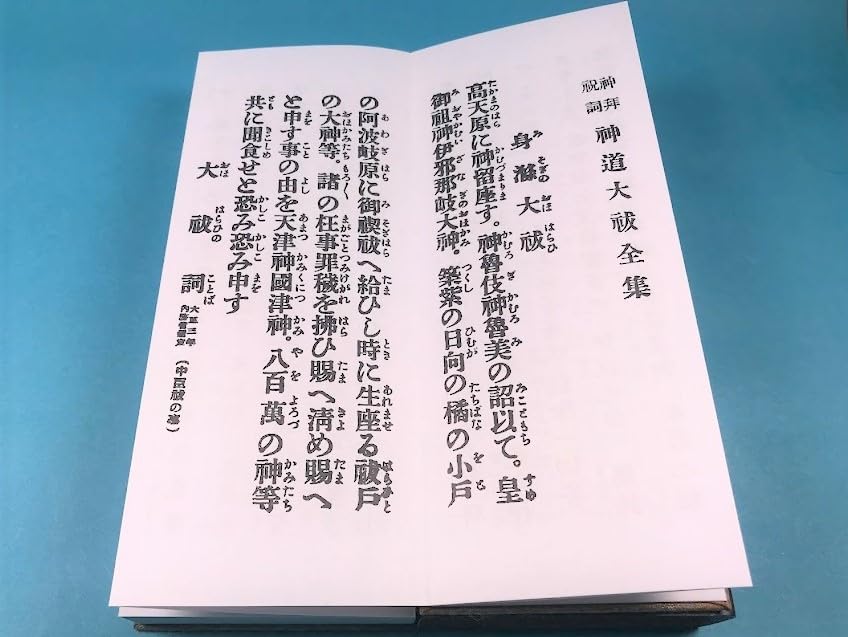 神拝祝詞 神道大祓全集
身滌大祓
高天原に神留座す。神魯伎神魯美の詔以て。皇
御祖神伊邪那岐大神。築紫の日向の橘の小戸
の阿波岐原に御禊祓へ給ひし時に生座る祓戸
の大神等。諸の枉事罪穢を拂ひ賜へ淸め賜へ
と申す事の由を天津神國津神。八百萬の神等
共に聞食せと恐み恐み申す
大祓詞 大正三年內務省選定 (中臣祓の事)